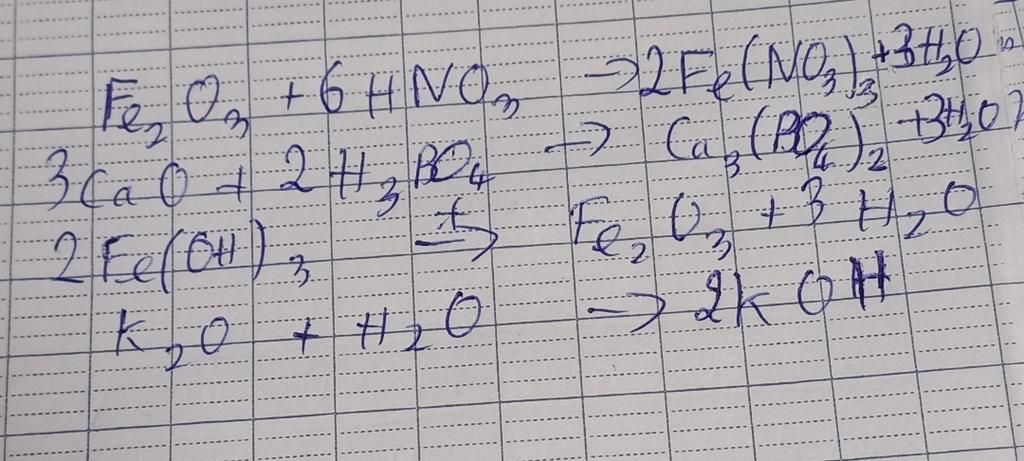 Fe₂O₃ + 6HNO₃ → 2Fe(NO₃)₃ + 3H₂O
3CaO + 2H₃PO₄ → Ca₃(PO₄)₂ + 3H₂O
2Fe(OH)₃ →ᵗ Fe₂O₃ + 3H₂O
K₂O + H₂O → 2KOH